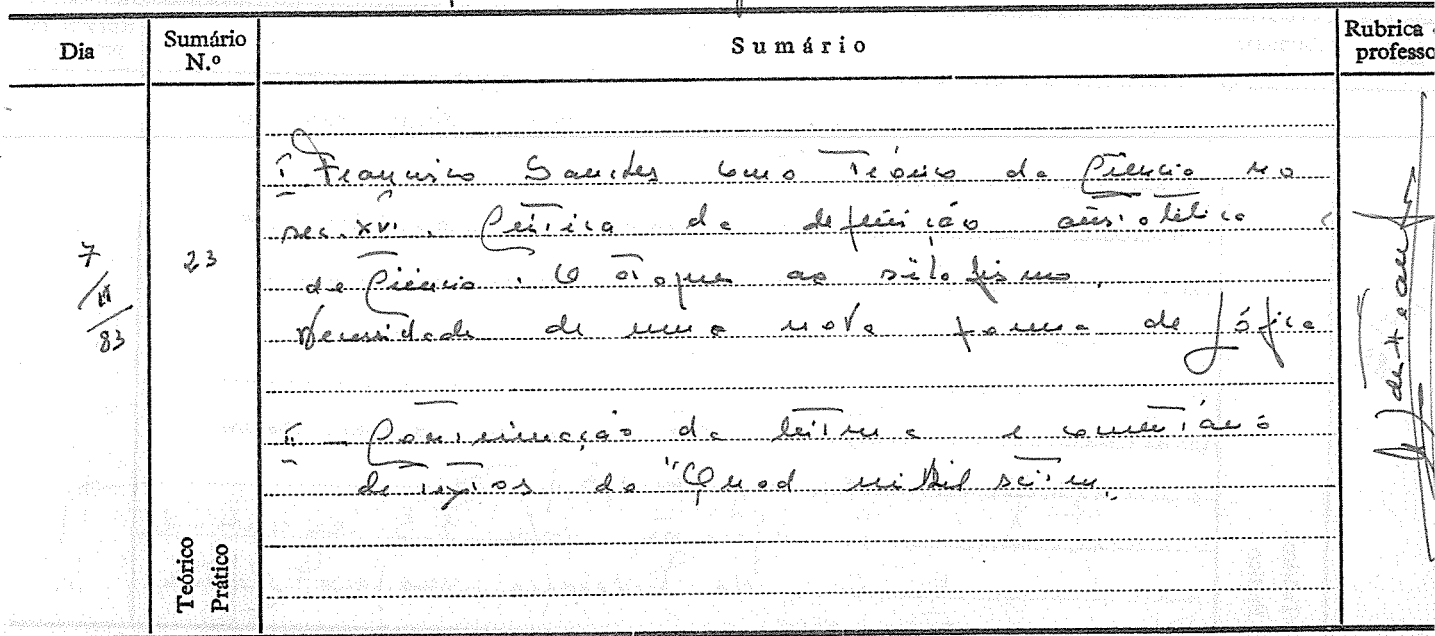 Dia
Sumário
N.º
Sumário
Rubrica
professo
7
23
83
I Francisco Sanches como Teórico da Ciência no
sec. XVI. Crítica da definição aristotélica
de Ciência. O ataque ao silogismo.
Necessidade de uma nova forma de lógica
II - Continuação da leitura e comentário
de textos do "Quod nihil scitur.
Teórico
Prático